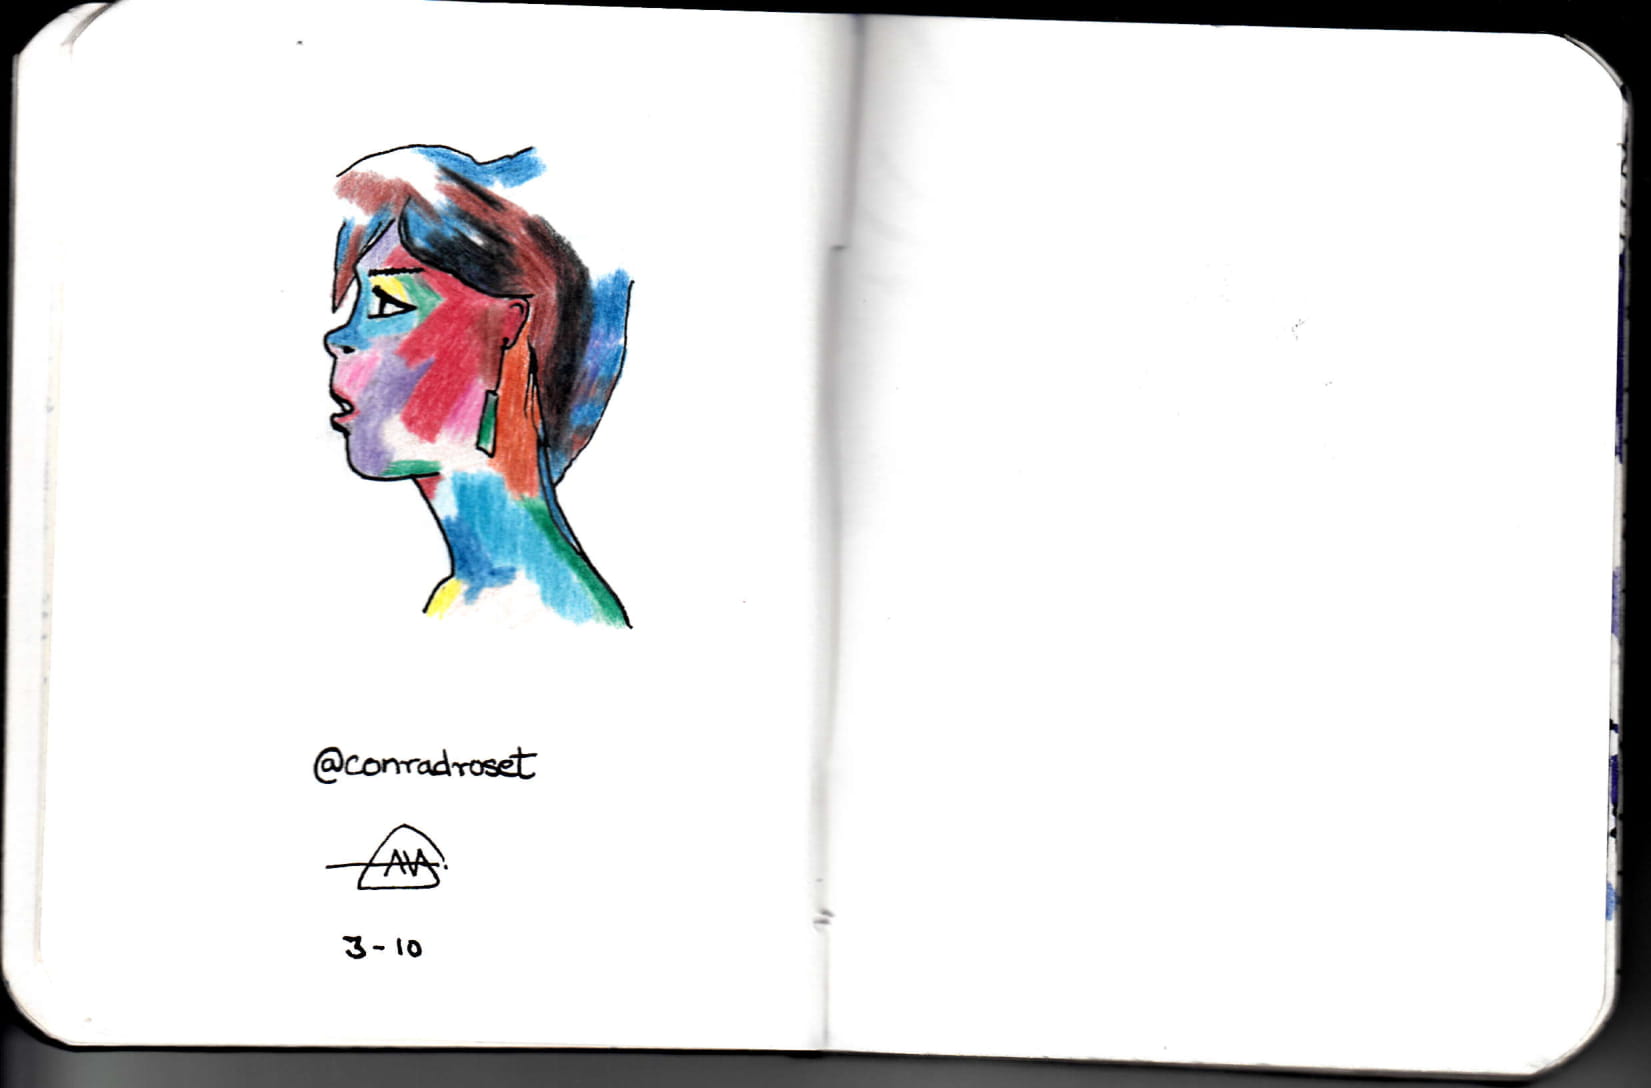 @conradroset
AVA
3-10